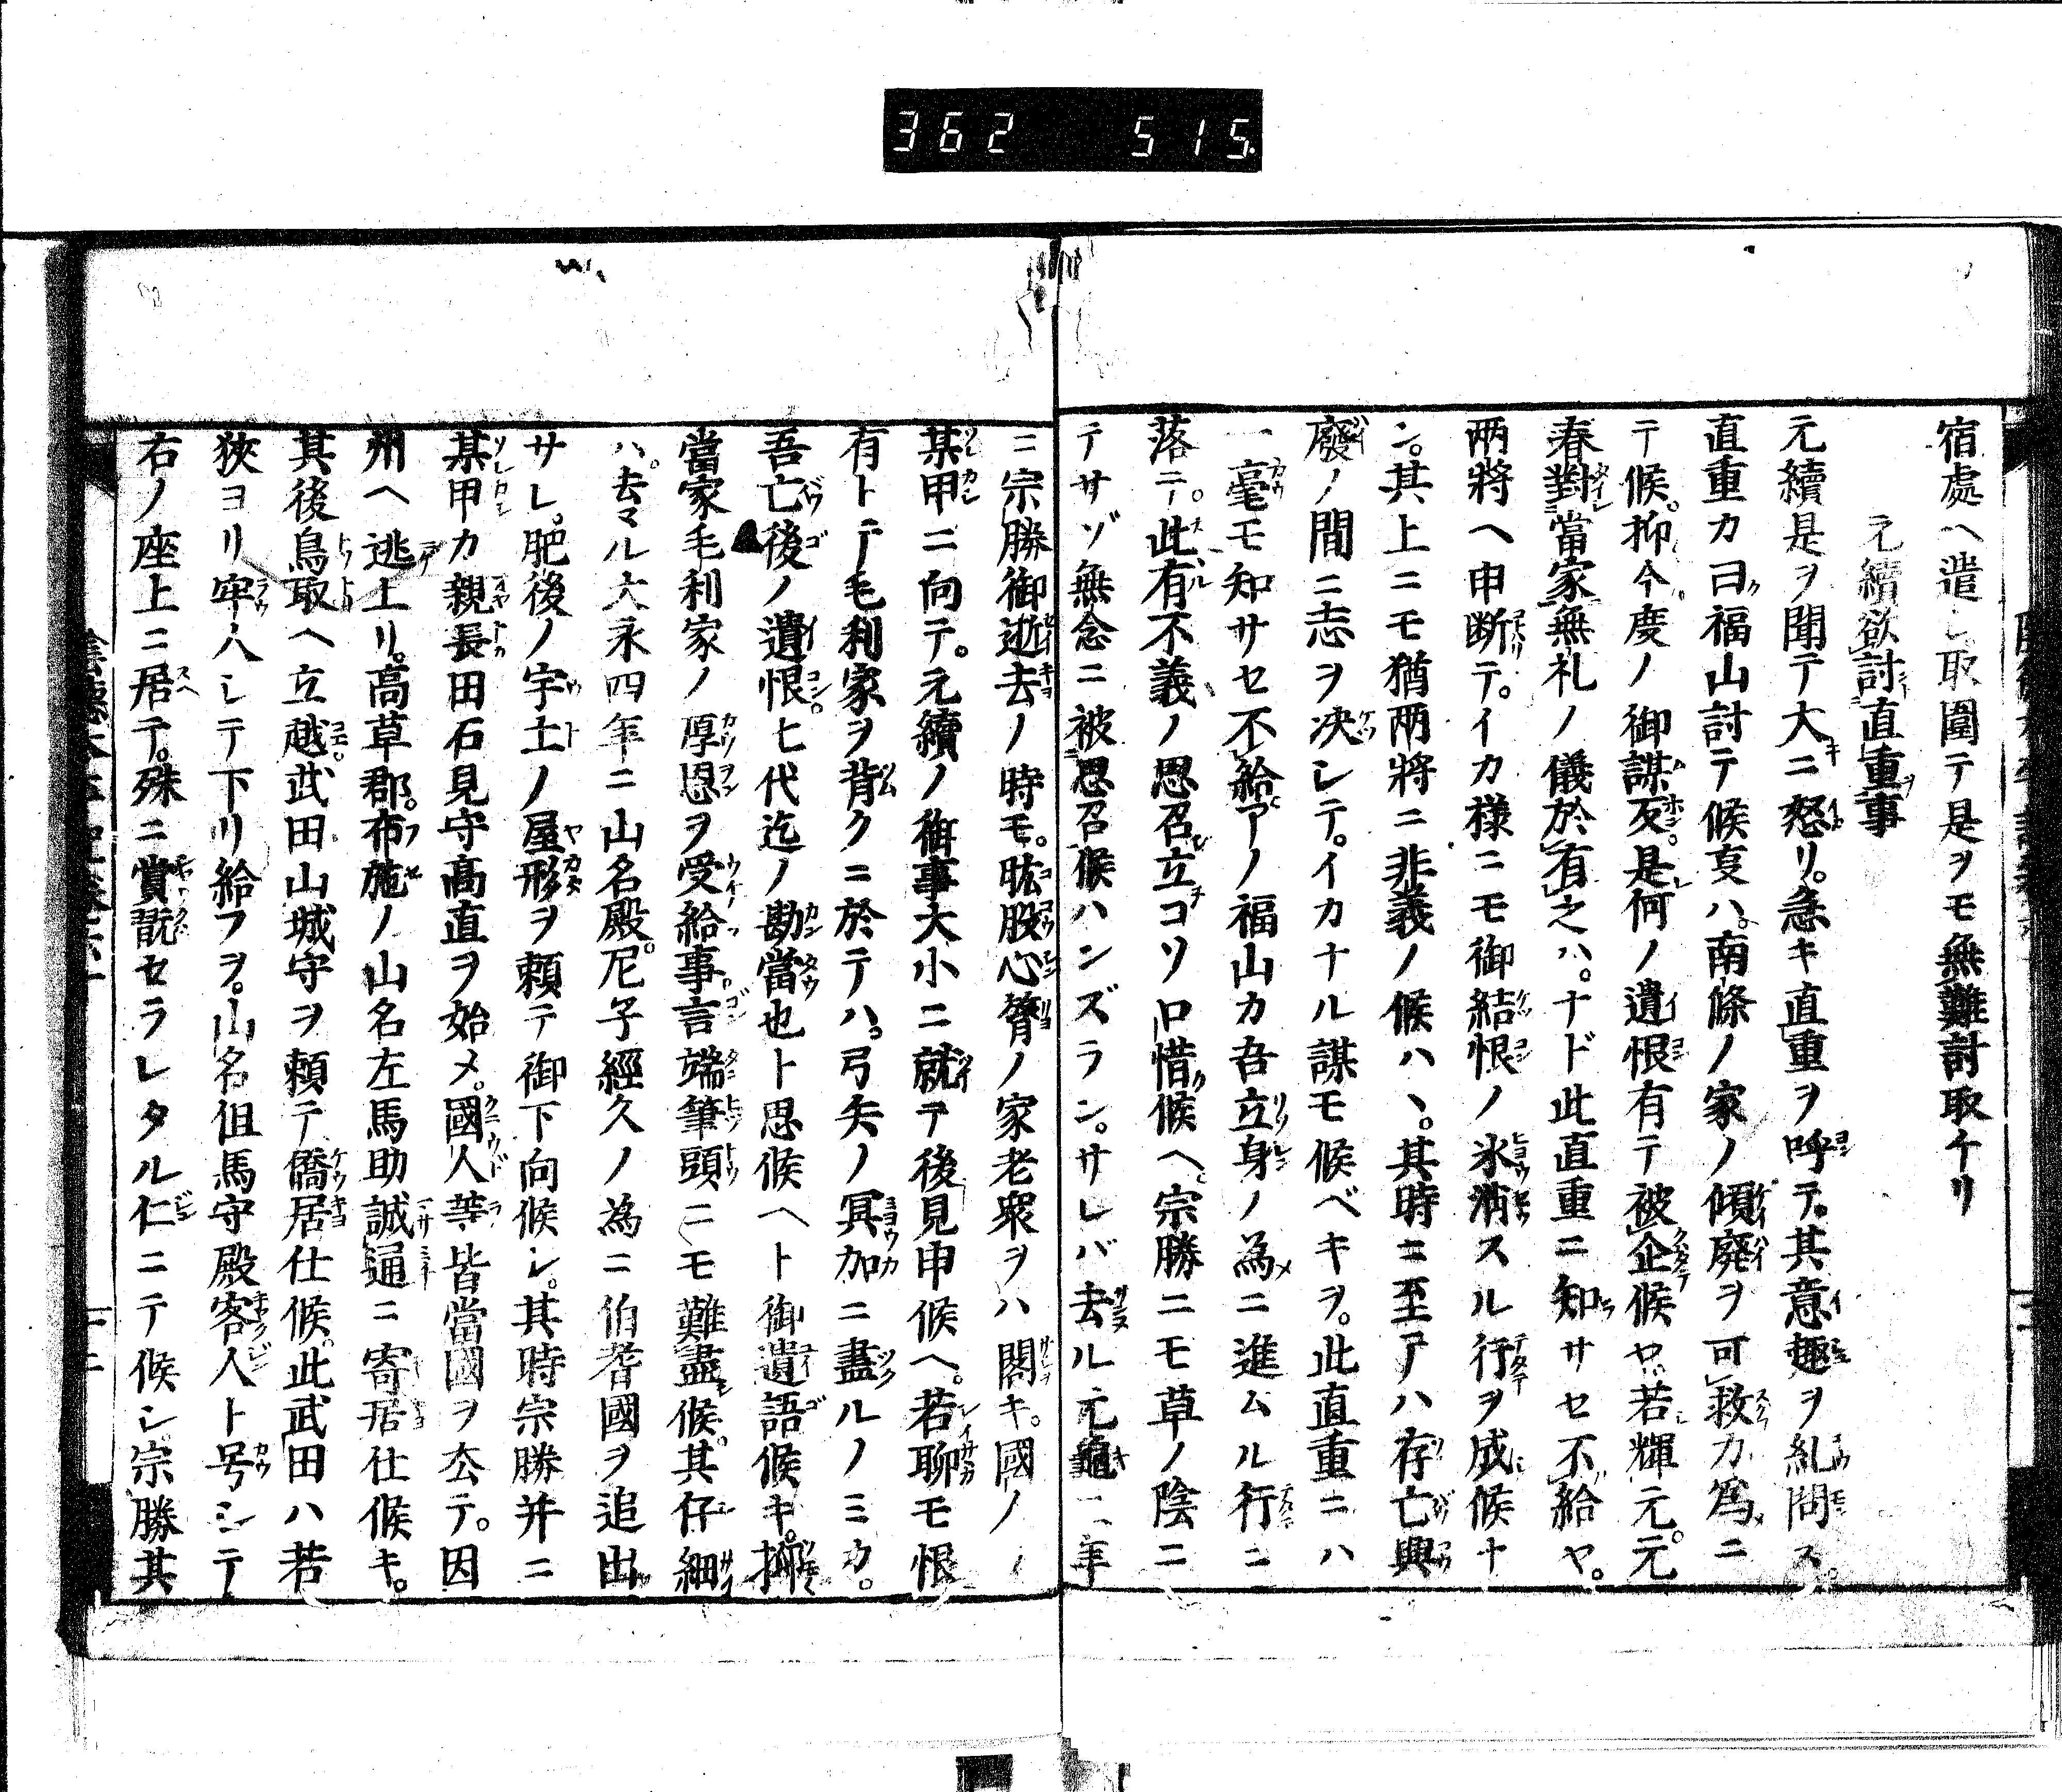 362 515
宿處ヘ遣シ取圍テ是ヲモ無難討取ケリ
元續欲討直重事
元續是ヲ聞テ大ニ怒リ。急キ直重ヲ呼テ。其意趣ヲ糺問ス。
直重カ曰福山討テ候叓ハ。南條ノ家ノ傾廢ヲ可救カ爲ニ
テ候。抑今度ノ御謀反。是何ノ遺恨有テ被企候ヤ。若輝元。元
春對當家無礼ノ儀於有之ハ。ナド此直重ニ知サセ不給ヤ。
兩將ヘ申断テ。イカ様ニモ御結恨ノ氷消スル行ヲ成候ナ
ン。其上ニモ猶兩將ニ非義ノ候ハヽ。其時ニ至テハ存亡興
廢ノ間ニ志ヲ决シテ。イカナル謀モ候ベキヲ。此直重ニハ
一毫モ知サセ不給アノ福山カ吾立身ノ為ニ進ムル行ニ
落テ。此有不義ノ思召立コソ口惜候ヘ。宗勝ニモ草ノ陰ニ
テサゾ無念ニ被思召候ハンズラン。サレバ去ル元龜二年
ニ宗勝御逝去ノ時モ。肱股心膂ノ家老衆ヲハ閣キ。國ノ
某甲ニ向テ。元續ノ御事大小ニ就テ後見申候ヘ。若聊モ恨
有トテ毛利家ヲ背クニ於テハ。弓矢ノ冥加ニ盡ルノミカ。
吾亡後ノ遺恨。七代迄ノ勘當也ト思候ヘト御遺語候キ。抑
當家毛利家ノ厚恩ヲ受給事。言端筆頭ニモ難盡候。其仔細
ハ。去マル大永四年ニ山名殿。尼子經久ノ為ニ伯耆國ヲ追出
サレ。肥後ノ宇土ノ屋形ヲ頼テ御下向候シ。其時宗勝并ニ
某甲カ親長田石見守高直ヲ始メ。國人等皆當國ヲ厺テ。因
州ヘ逃上リ。高草郡。布施ノ山名左馬助誠通ニ寄居仕候キ。
其後鳥取ヘ立越。武田山城守ヲ頼テ僑居仕候。此武田ハ若
狹ヨリ牢人シテ下リ給フヲ。山名但馬守殿客人ト号シテ
右ノ座上ニ居テ。殊ニ賞翫セラレタル仁ニテ候シ。宗勝其